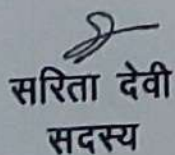 सरिता देवी
सदस्य